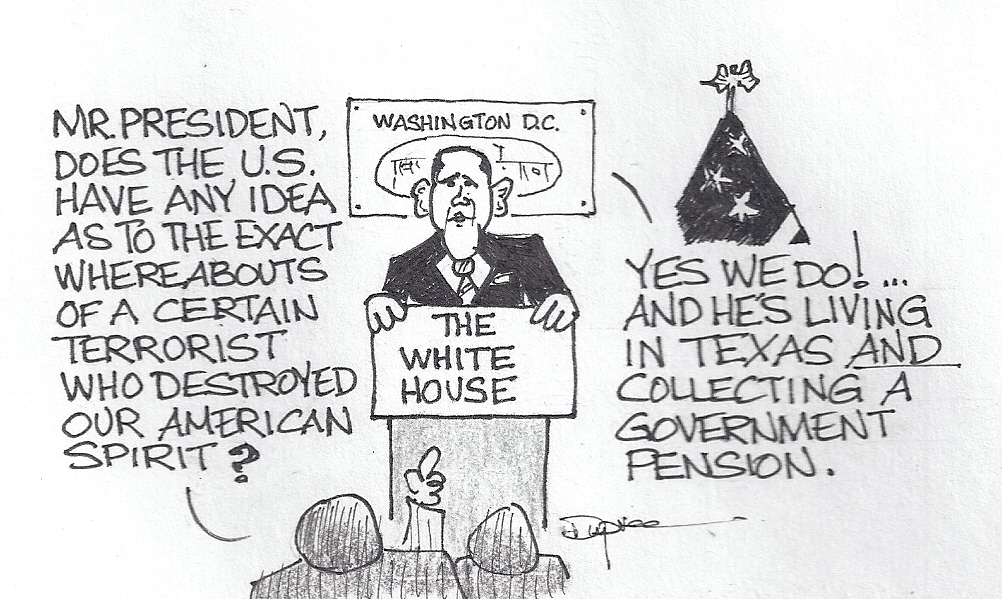 MR. PRESIDENT,
DOES THE U.S.
HAVE ANY IDEA
AS TO THE EXACT
WHEREABOUTS
OF A CERTAIN
TERRORIST
WHO DESTROYED
OUR AMERICAN
SPIRIT?
WASHINGTON D.C.
THE
WHITE
HOUSE
YES WE DO!...
AND HE'S LIVING
IN TEXAS AND
COLLECTING A
GOVERNMENT
PENSION.